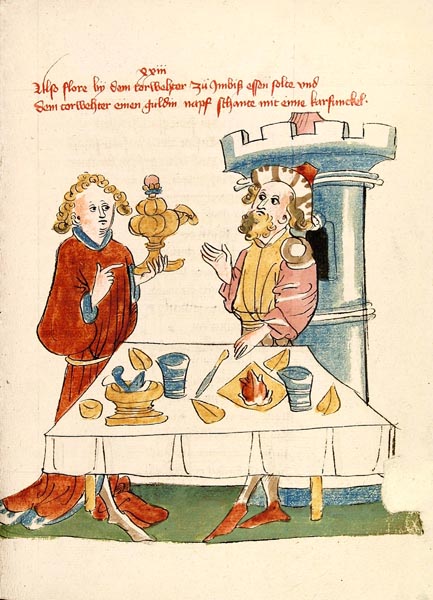 xxiii
Also flore by dem torwehter zü Jmbiß essen solte vnd
dem torwehter einen guldin napf schancte mit eime karfunckel.